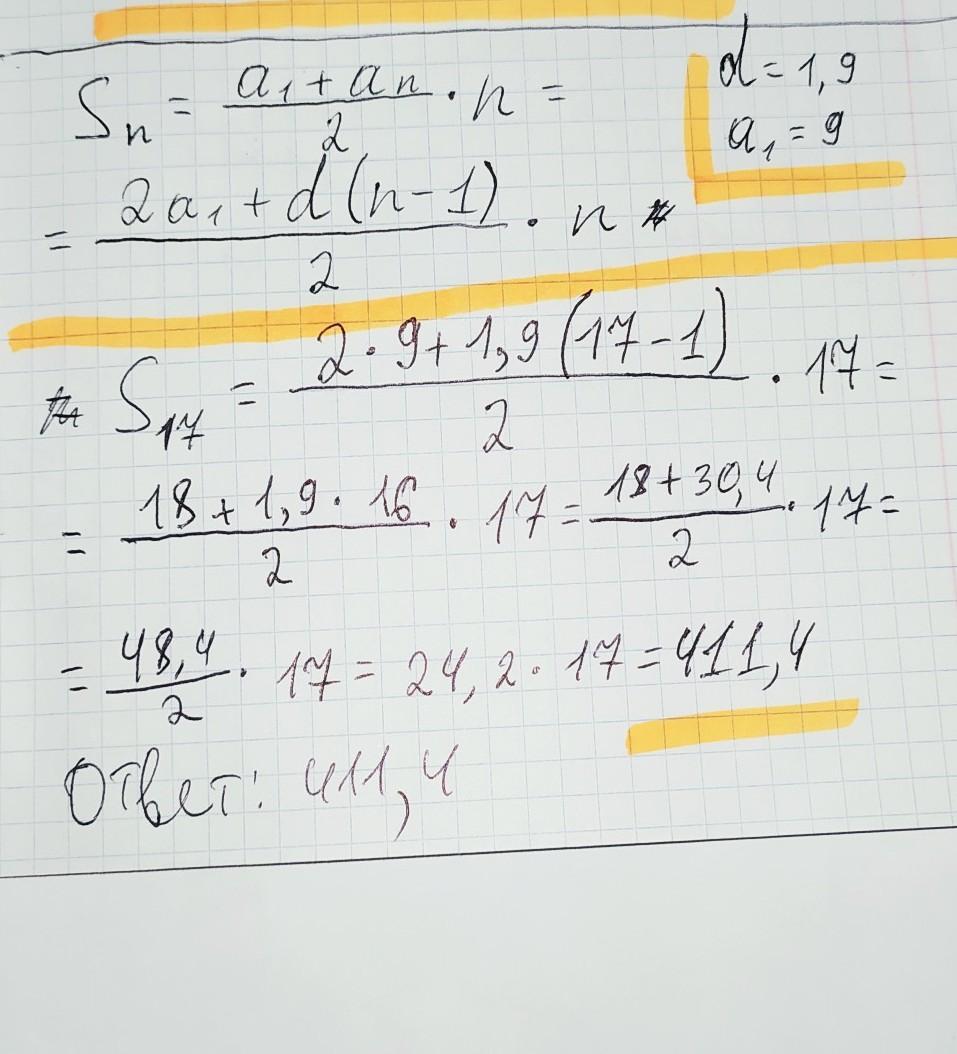 Sₙ = (a₁ + aₙ)/2 · n =
d = 1,9
a₁ = 9
= (2a₁ + d(n-1))/2 · n
S₁₇ = (2·9 + 1,9(17-1))/2 · 17 =
= (18 + 1,9·16)/2 · 17 = (18 + 30,4)/2 · 17 =
= 48,4/2 · 17 = 24,2 · 17 = 411,4
Ответ: 411,4